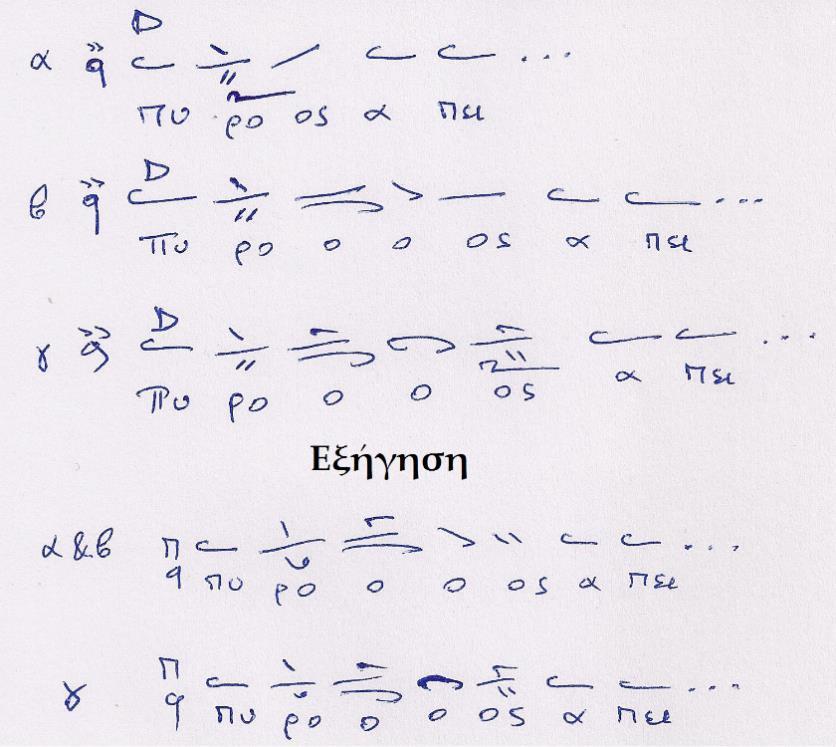 α πυ ρο ος α πει ...
β πυ ρο ο ο ος α πει ...
γ πυ ρο ο ο ος α πει ...
Εξήγηση
α & β π πυ ρο ο ο ος α πει ...
γ π πυ ρο ο ο ος α πει ...